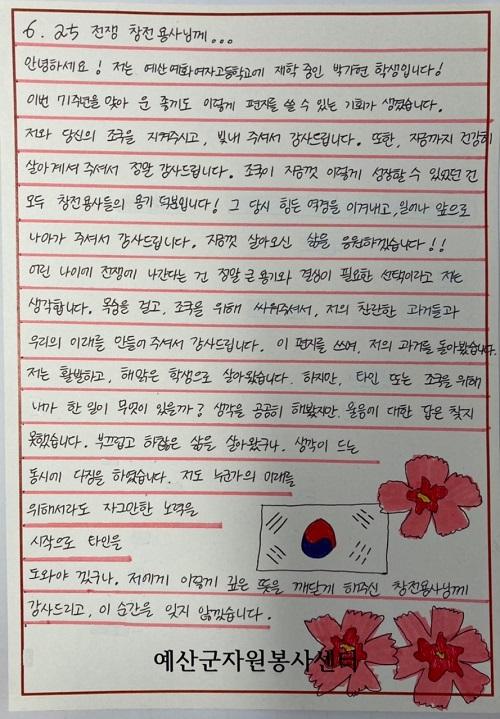 6. 25 전쟁 참전용사님께...
안녕하세요! 저는 예산예화여자고등학교에 재학 중인 박가현 학생입니다!
이번 71주년을 맞아 운 좋게도 이렇게 편지를 쓸 수 있는 기회가 생겼습니다.
저와 당신의 조국을 지켜주시고, 빛내 주셔서 감사드립니다. 또한, 지금까지 건강히
살아계셔 주셔서 정말 감사드립니다. 조국이 지금껏 이렇게 성장할 수 있었던 건
모두 참전용사들의 용기 덕분입니다! 그 당시 힘든 역경을 이겨내고, 일어나 앞으로
나아가 주셔서 감사드립니다. 지금껏 살아오신 삶을 응원하겠습니다!!
어린 나이에 전쟁에 나간다는 건 정말 큰 용기와 결심이 필요한 선택이라고 저는
생각합니다. 목숨을 걸고, 조국을 위해 싸워주셔서, 저의 찬란한 과거들과
우리의 미래를 만들어 주셔서 감사드립니다. 이 편지를 쓰며, 저의 과거를 돌아봤습니다.
저는 활발하고, 해맑은 학생으로 살아왔습니다. 하지만, 타인 또는 조국을 위해
내가 한 일이 무엇이 있을까? 생각을 곰곰히 해봤지만, 물음에 대한 답은 찾지
못했습니다. 부끄럽고 하찮은 삶을 살아왔구나. 생각이 드는
동시에 다짐을 하였습니다. 저도 누군가의 미래를
위해서라도 자그만한 노력을
시작으로 타인을
도와야 겠구나. 저에게 이렇게 깊은 뜻을 깨닫게 해주신 참전용사님께
감사드리고, 이 순간을 잊지 않겠습니다.
예산군자원봉사센터